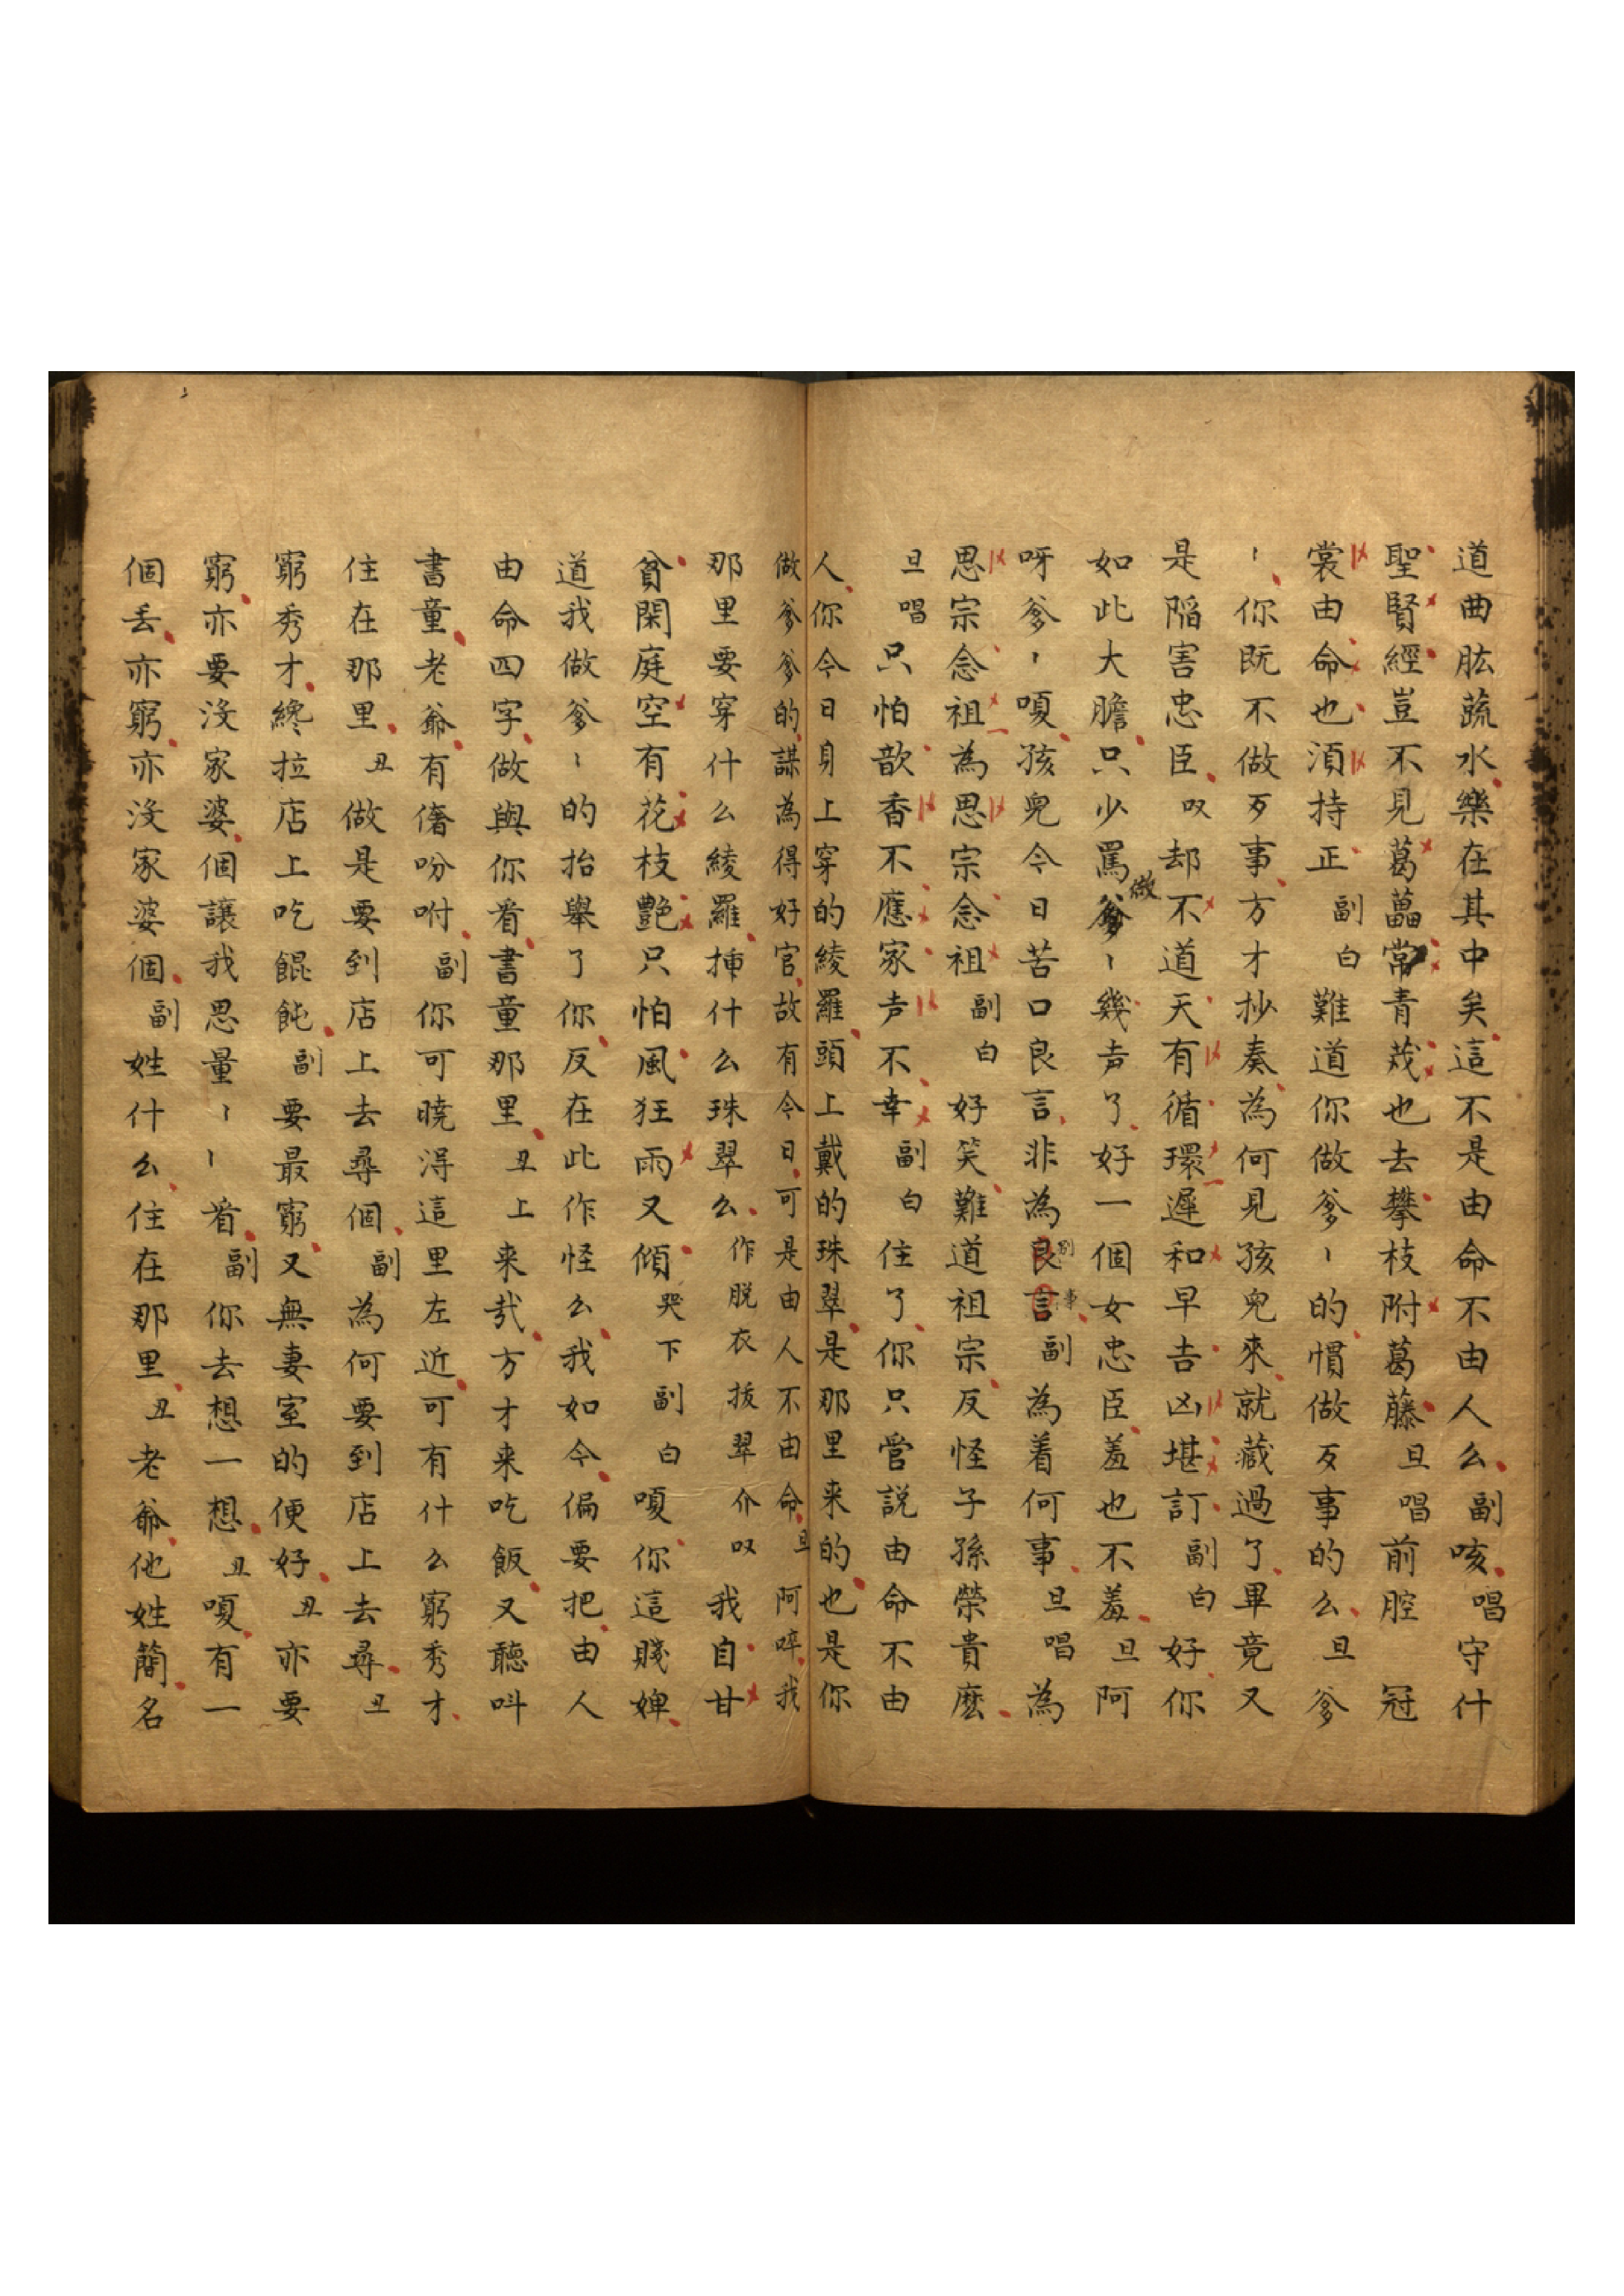 道曲肱蔬水樂在其中矣這不是由命不由人么副咳唱守什
聖賢經豈不見葛藟常青荗也去攀枝附葛藤旦唱前腔冠
裳由命也湏持正副白難道你做爹〻的慣做歹事的么旦爹
〻你既不做歹事方才抄奏為何見孩兒來就藏過了畢竟又
是陷害忠臣叹却不道天有循環遲和早吉凶堪訂副白好你
如此大膽只少罵做爹〻幾声了好一個女忠臣羞也不羞旦阿
呀爹〻嗄孩兒今日苦口良言非為良言副為着何事旦唱為
思宗念祖為思宗念祖副白好笑難道祖宗反怪子孫榮貴麽
旦唱只怕歆香不應家声不幸副白住了你只管説由命不由
人你今日身上穿的綾羅頭上戴的珠翠是那里来的也是你
做爹爹的謀為得好官故有今日可是由人不由命旦阿啐我
那里要穿什么綾羅揷什么珠翠么作脱衣拔翠介叹我自甘
貧閑庭空有花枝艷只怕風狂雨又傾哭下副白嗄你這賤婢
道我做爹〻的抬舉了你反在此作怪么我如今偏要把由人
由命四字做與你看書童那里丑上来哉方才来吃飯又聽叫
書童老爺有僭吩咐副你可曉淂這里左近可有什么窮秀才
住在那里丑做是要到店上去尋個副為何要到店上去尋丑
窮秀才纔拉店上吃餛飩副要最窮又無妻室的便好丑亦要
窮亦要没家婆個讓我思量〻〻看副你去想一想丑嗄有一
個丢亦窮亦没家婆個副姓什么住在那里丑老爺他姓簡名